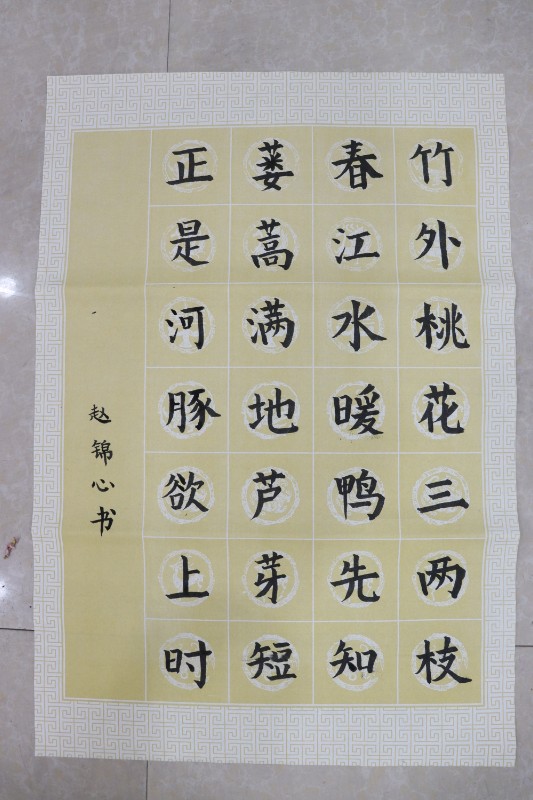 竹外桃花三两枝
春江水暖鸭先知
蒌蒿满地芦芽短
正是河豚欲上时
赵锦心书